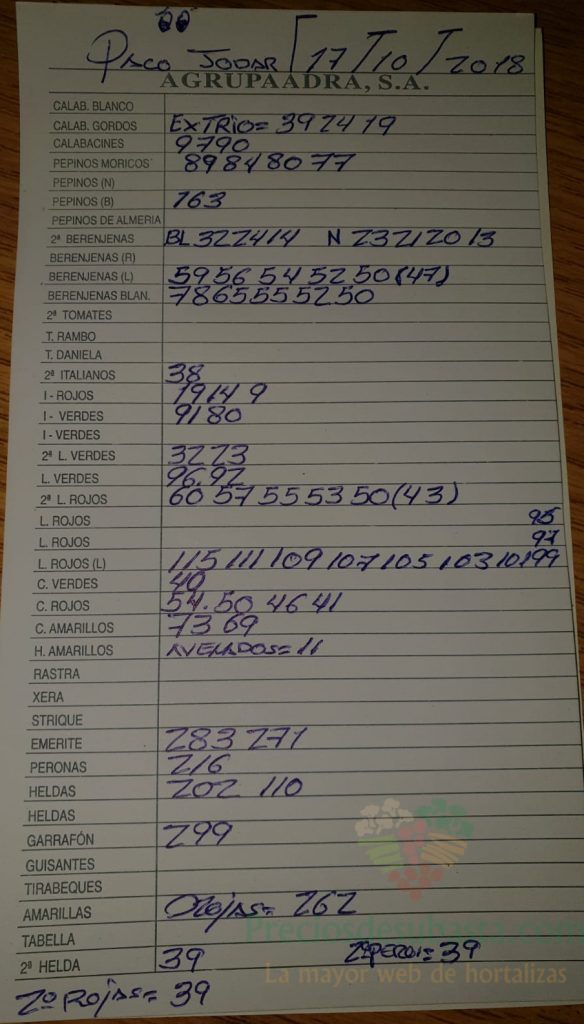 PACO JODAR / 17 / 10 / 2018
AGRUPAADRA, S.A.
CALAB. BLANCO
CALAB. GORDOS EXTRIO= 39 24 19
CALABACINES 97 90
PEPINOS MORICOS 89 84 80 77
PEPINOS (N)
PEPINOS (B) 163
PEPINOS DE ALMERIA
2ª BERENJENAS BL 32 24 14 N 23 21 20 13
BERENJENAS (R)
BERENJENAS (L) 59 56 54 52 50 (47)
BERENJENAS BLAN. 78 65 55 52 50
2ª TOMATES
T. RAMBO
T. DANIELA
2ª ITALIANOS 38
I - ROJOS 19 14 9
I - VERDES 91 80
I - VERDES
2ª L. VERDES 32 23
L. VERDES 96. 92
2ª L. ROJOS 60 57 55 53 50 (43)
L. ROJOS 95
L. ROJOS 97
L. ROJOS (L) 115 111 109 107 105 103 101 99
C. VERDES 40
C. ROJOS 54. 50 46 41
C. AMARILLOS 73 69
H. AMARILLOS = 11
RASTRA
XERA
STRIQUE
EMERITE 283 271
PERONAS 216
HELDAS 202 110
HELDAS
GARRAFÓN 299
GUISANTES
TIRABEQUES
AMARILLAS ROJAS= 262
TABELLA
Preciosdesubasta.com
2ª HELDA 39 2ª PERO = 39
La mayor web de hortalizas
2ª ROJAS= 39